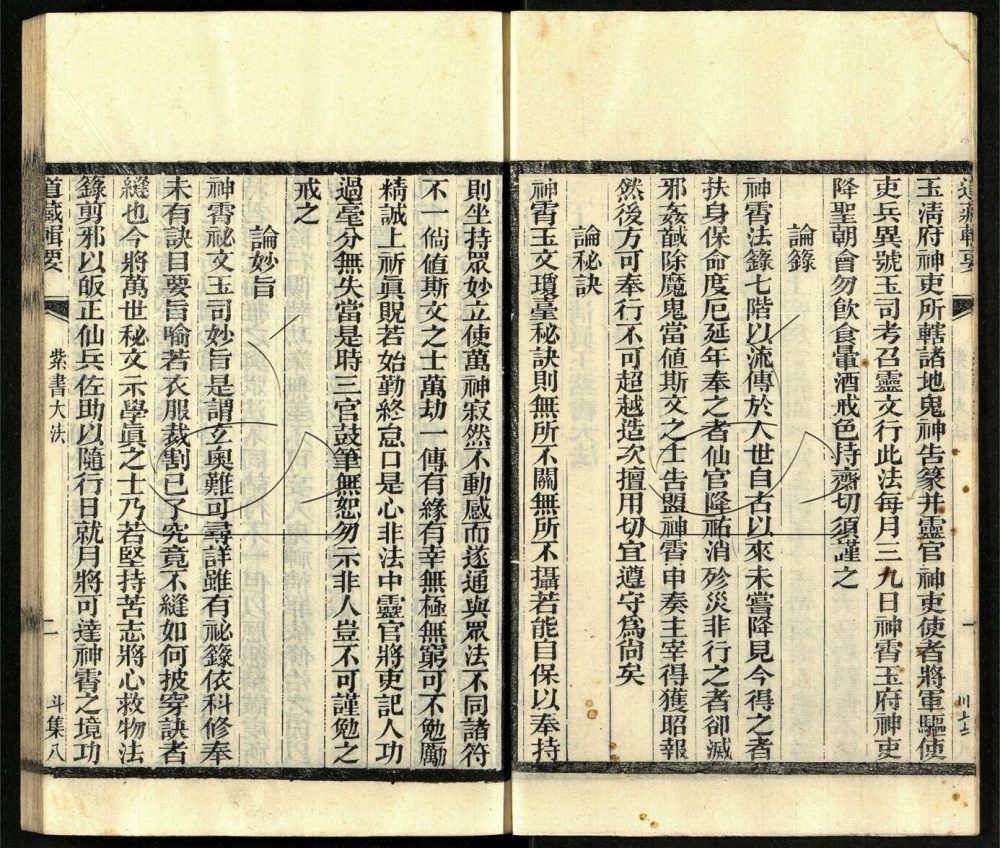 玉清府神吏所轄諸地鬼神告篆并靈官神吏使者將軍驅使
吏兵異號玉司考召靈文行此法每月三九日神霄玉府神吏
降聖朝會勿飲食葷酒戒色持齋切須謹之
論籙
神霄法籙七階以流傳於人世自古以來未嘗降見今得之者
扶身保命度厄延年奉之者仙官降祐消殄災非行之者卻滅
邪姦馘除魔鬼當値斯文之士告盟神霄申奏主宰得獲昭報
然後方可奉行不可超越造次擅用切宜遵守爲尙矣
論秘訣
神霄玉文瓊臺秘訣則無所不關無所不攝若能自保以奉持
則坐持眾妙立使萬神寂然不動感而遂通與眾法不同諸符
不一倘值斯文之士萬劫一傳有緣有幸無極無窮可不勉勵
精誠上祈眞貺若始勤終怠口是心非法中靈官將吏記人功
過毫分無失當是時三官鼓筆無恕勿示非人豈不可謹勉之
戒之
論妙旨
神霄祕文玉司妙旨是謂玄奧難可尋詳雖有祕籙依科修奉
未有訣目要旨喻若衣服裁割已了究竟不縫如何披穿訣者
縫也今將萬世秘文示學眞之士乃若堅持苦志將心救物法
籙剪邪以皈正仙兵佐助以隨行日就月將可達神霄之境功
道藏輯要 紫書大法 二 斗集八